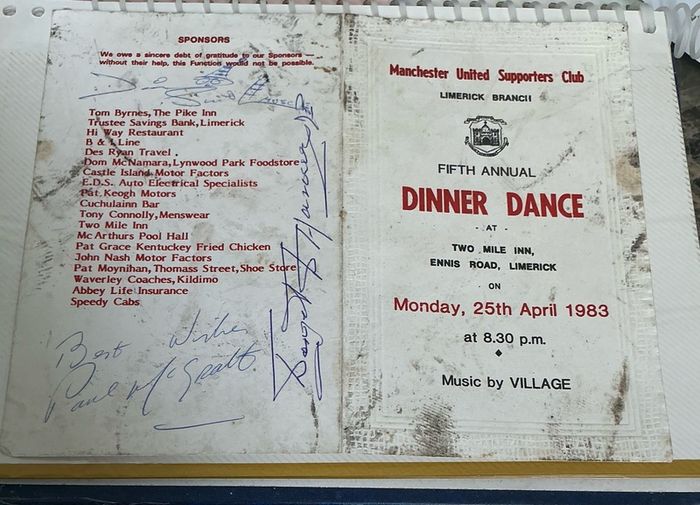 SPONSORS
We owe a sincere debt of gratitude to our Sponsors —
without their help, this Function would not be possible.
Tom Byrnes, The Pike Inn
Trustee Savings Bank, Limerick
Hi Way Restaurant
B & I Line
Des Ryan Travel
Dom McNamara, Lynwood Park Foodstore
Castle Island Motor Factors
E.D.S. Auto Electrical Specialists
Pat Keogh Motors
Cuchulainn Bar
Tony Connolly, Menswear
Two Mile Inn
McArthurs Pool Hall
Pat Grace Kentucky Fried Chicken
John Nash Motor Factors
Pat Moynihan, Thomass Street, Shoe Store
Waverley Coaches, Kildimo
Abbey Life Insurance
Speedy Cabs
Best Wishes
Paul McGrath
Manchester United Supporters Club
LIMERICK BRANCH
FIFTH ANNUAL
DINNER DANCE
- AT -
TWO MILE INN,
ENNIS ROAD, LIMERICK
ON
Monday, 25th April 1983
at 8.30 p.m.
Music by VILLAGE